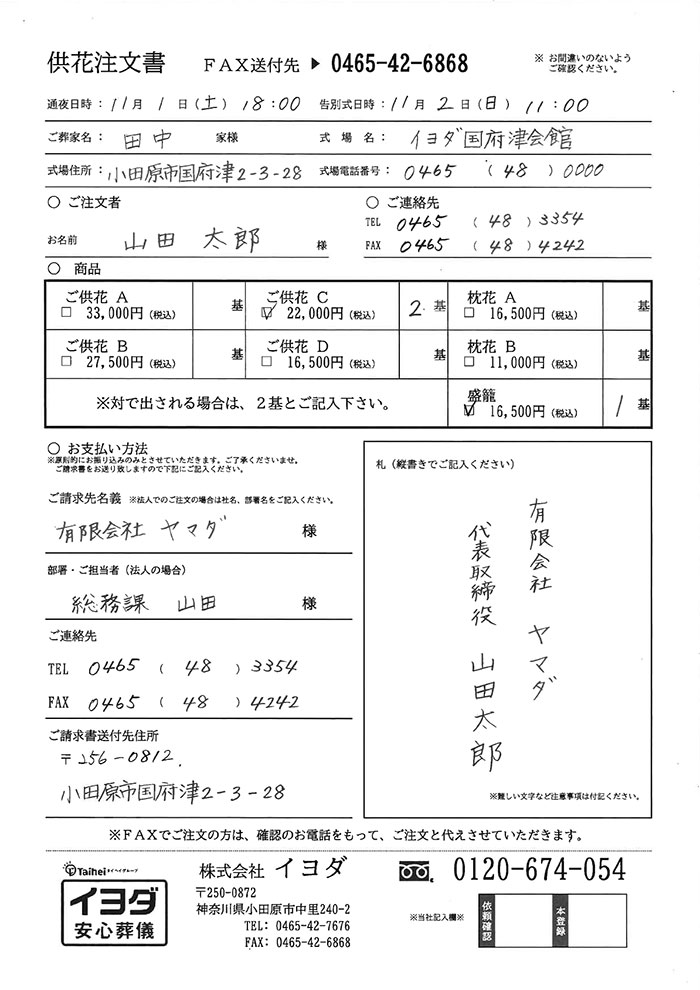 供花注文書 FAX送付先 ▶ 0465-42-6868 ※ お間違いのないよう
ご確認ください。
通夜日時：11月 1 日(土) 18:00 告別式日時：11月 2 日(日) 11:00
ご葬家名： 田中 家様 式 場 名： イヨダ国府津会館
式場住所：小田原市国府津2-3-28 式場電話番号： 0465 ( 48 ) 0000
○ ご注文者 ○ ご連絡先
TEL 0465 ( 48 ) 3354
お名前 山田 太郎 様 FAX 0465 ( 48 ) 4242
○ 商品
ご供花 A 基 ご供花 C 2 基 枕花 A 基
□ 33,000円（税込） ☑ 22,000円（税込） □ 16,500円（税込）
ご供花 B 基 ご供花 D 基 枕花 B 基
□ 27,500円（税込） □ 16,500円（税込） □ 11,000円（税込）
※対で出される場合は、２基とご記入下さい。 盛籠 1 基
☑ 16,500円（税込）
○ お支払い方法
※原則的にお振り込みのみとさせていただきます。ご了承くださいませ。
ご請求書をお送り致しますので下記にご記入ください。
ご請求先名義 ※法人でのご注文の場合は社名、部署名をご記入ください。
有限会社 ヤマダ 様
部署・ご担当者（法人の場合）
総務課 山田 様
ご連絡先
TEL 0465 ( 48 ) 3354
FAX 0465 ( 48 ) 4242
ご請求書送付先住所
〒256-0812.
小田原市国府津2-3-28
札（縦書きでご記入ください）
有限会社 ヤマダ
代表取締役 山田太郎
※難しい文字など注意事項は付記ください。
※FAXでご注文の方は、確認のお電話をもって、ご注文と代えさせていただきます。
Taihei タイヘイグループ
イヨダ
安心葬儀
株式会社 イヨダ
〒250-0872
神奈川県小田原市中里240-2
TEL: 0465-42-7676
FAX: 0465-42-6868
0120-674-054
※当社記入欄※ 依頼確認 本登録